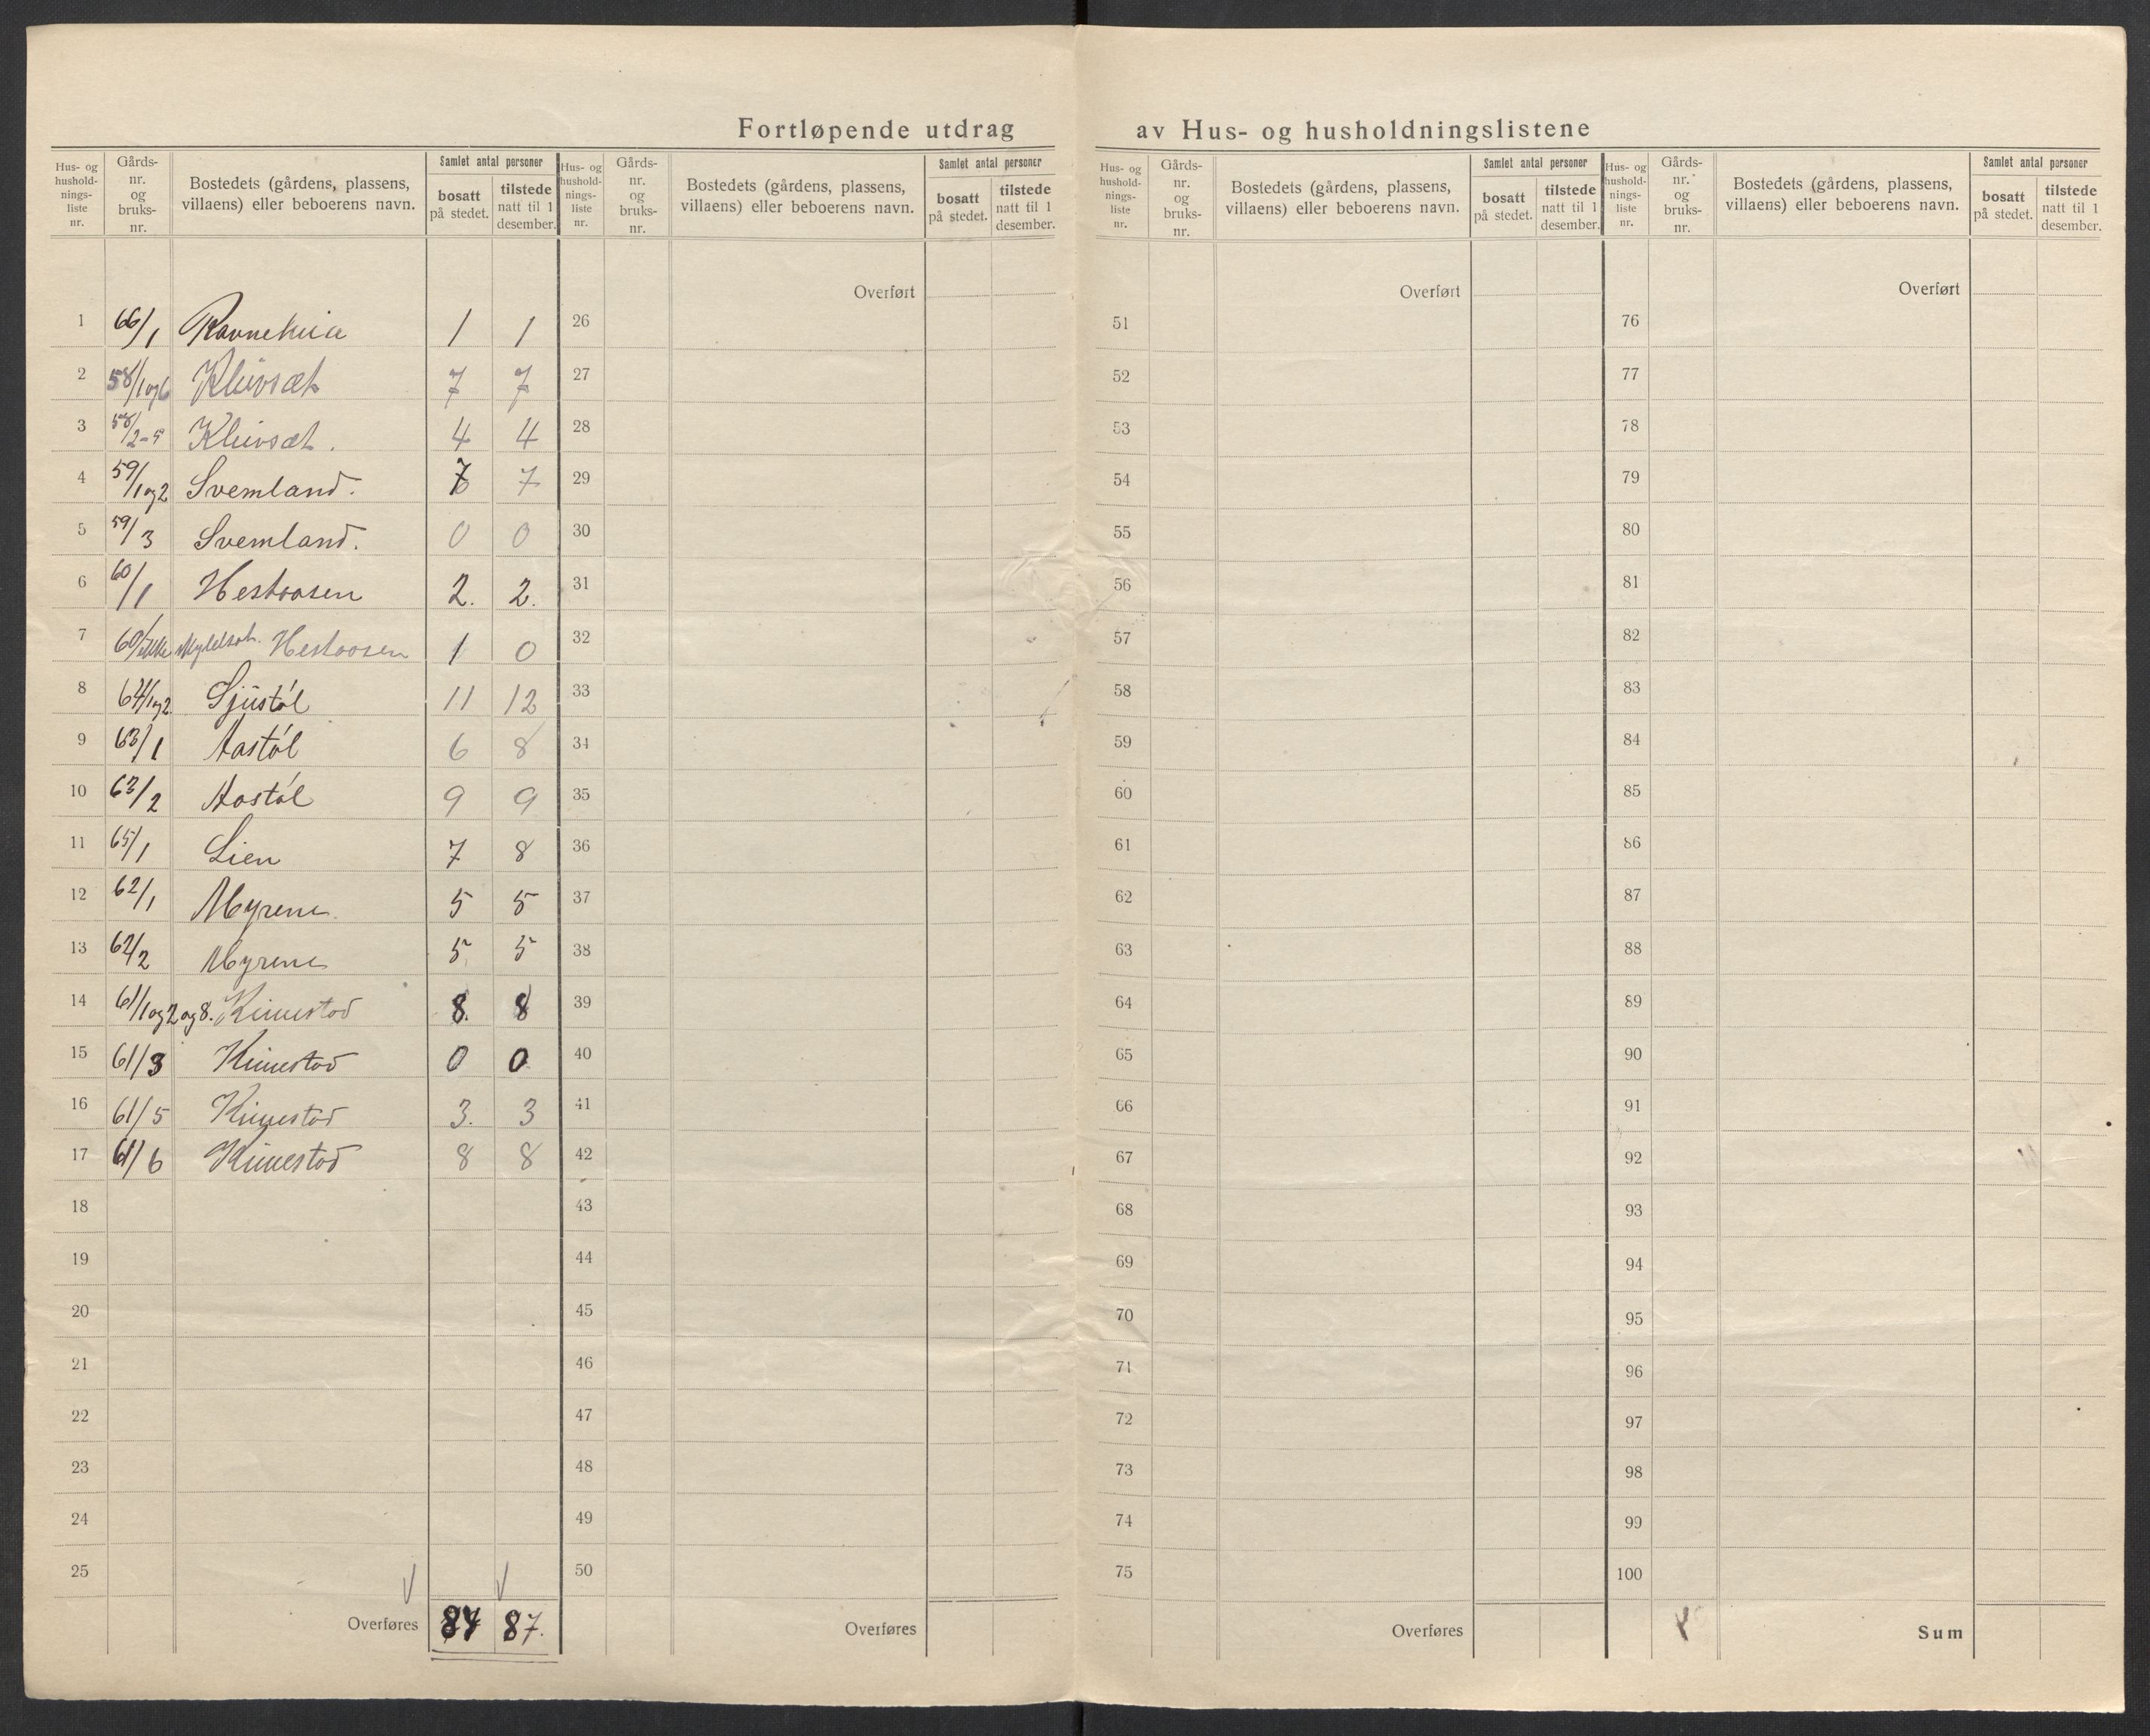 Fortløpende utdrag av Hus- og husholdningslistene
Hus- og hushold-nings-liste nr. | Gårds-nr. og bruks-nr. | Bostedets (gårdens, plassens, villaens) eller beboerens navn. | Samlet antal personer | bosatt på stedet. | tilstede natt til 1 desember.
1 66/1 1 1
2 58/1og6 Kleivsæt 7 7
3 58/2-5 Kleivsæt. 4 4
4 59/1og2 Svemland. 7 7
5 59/3 Svemland. 0 0
6 60/1 Hestaasen 2. 2.
7 60/ikke skyldsat. Hestaasen 1 0
8 64/1og2. Sjustøl 11 12
9 63/1 Aastøl 6 8
10 63/2 Aastøl 9 9
11 65/1 Lien 7 8
12 62/1 Myrene. 5 5
13 62/2 Myrene 5. 5
14 61/1og2og8. Kimestad 8. 8
15 61/3 Kimestad 0 0
16 61/5 Kimestad 3. 3
17 61/6 Kimestad 8 8
18
19
20
21
22
23
24
25
Overføres 84 87.
Hus- og hushold-nings-liste nr. | Gårds-nr. og bruks-nr. | Bostedets (gårdens, plassens, villaens) eller beboerens navn. | Samlet antal personer | bosatt på stedet. | tilstede natt til 1 desember.
Overført
26
27
28
29
30
31
32
33
34
35
36
37
38
39
40
41
42
43
44
45
46
47
48
49
50
Overføres
Hus- og hushold-nings-liste nr. | Gårds-nr. og bruks-nr. | Bostedets (gårdens, plassens, villaens) eller beboerens navn. | Samlet antal personer | bosatt på stedet. | tilstede natt til 1 desember.
Overført
51
52
53
54
55
56
57
58
59
60
61
62
63
64
65
66
67
68
69
70
71
72
73
74
75
Overføres
Hus- og hushold-nings-liste nr. | Gårds-nr. og bruks-nr. | Bostedets (gårdens, plassens, villaens) eller beboerens navn. | Samlet antal personer | bosatt på stedet. | tilstede natt til 1 desember.
Overført
76
77
78
79
80
81
82
83
84
85
86
87
88
89
90
91
92
93
94
95
96
97
98
99
100
Sum